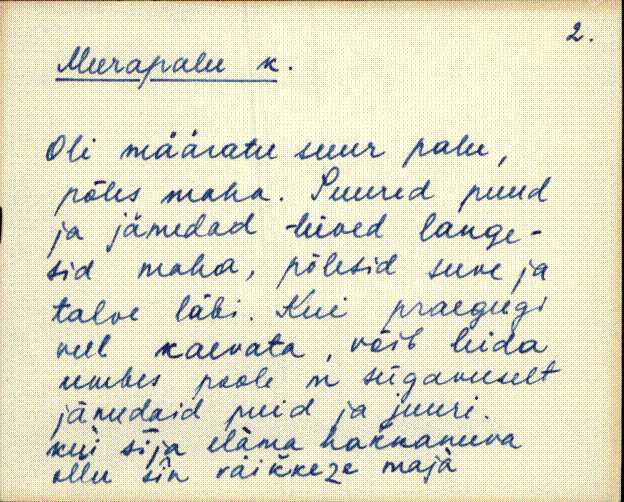 2.
Meerapalu k.
Oli määratu suur palu,
põles maha. Suured puud
ja jämedad tüved lange-
sid maha, põlesid suve ja
talve läbi. Kui praegugi
veel kaevata, võib leida
umbes poole m sügavuselt
jämedaid puid ja juuri.
kui sīja elama hakkanuva
ollu sīn väikkeze majā